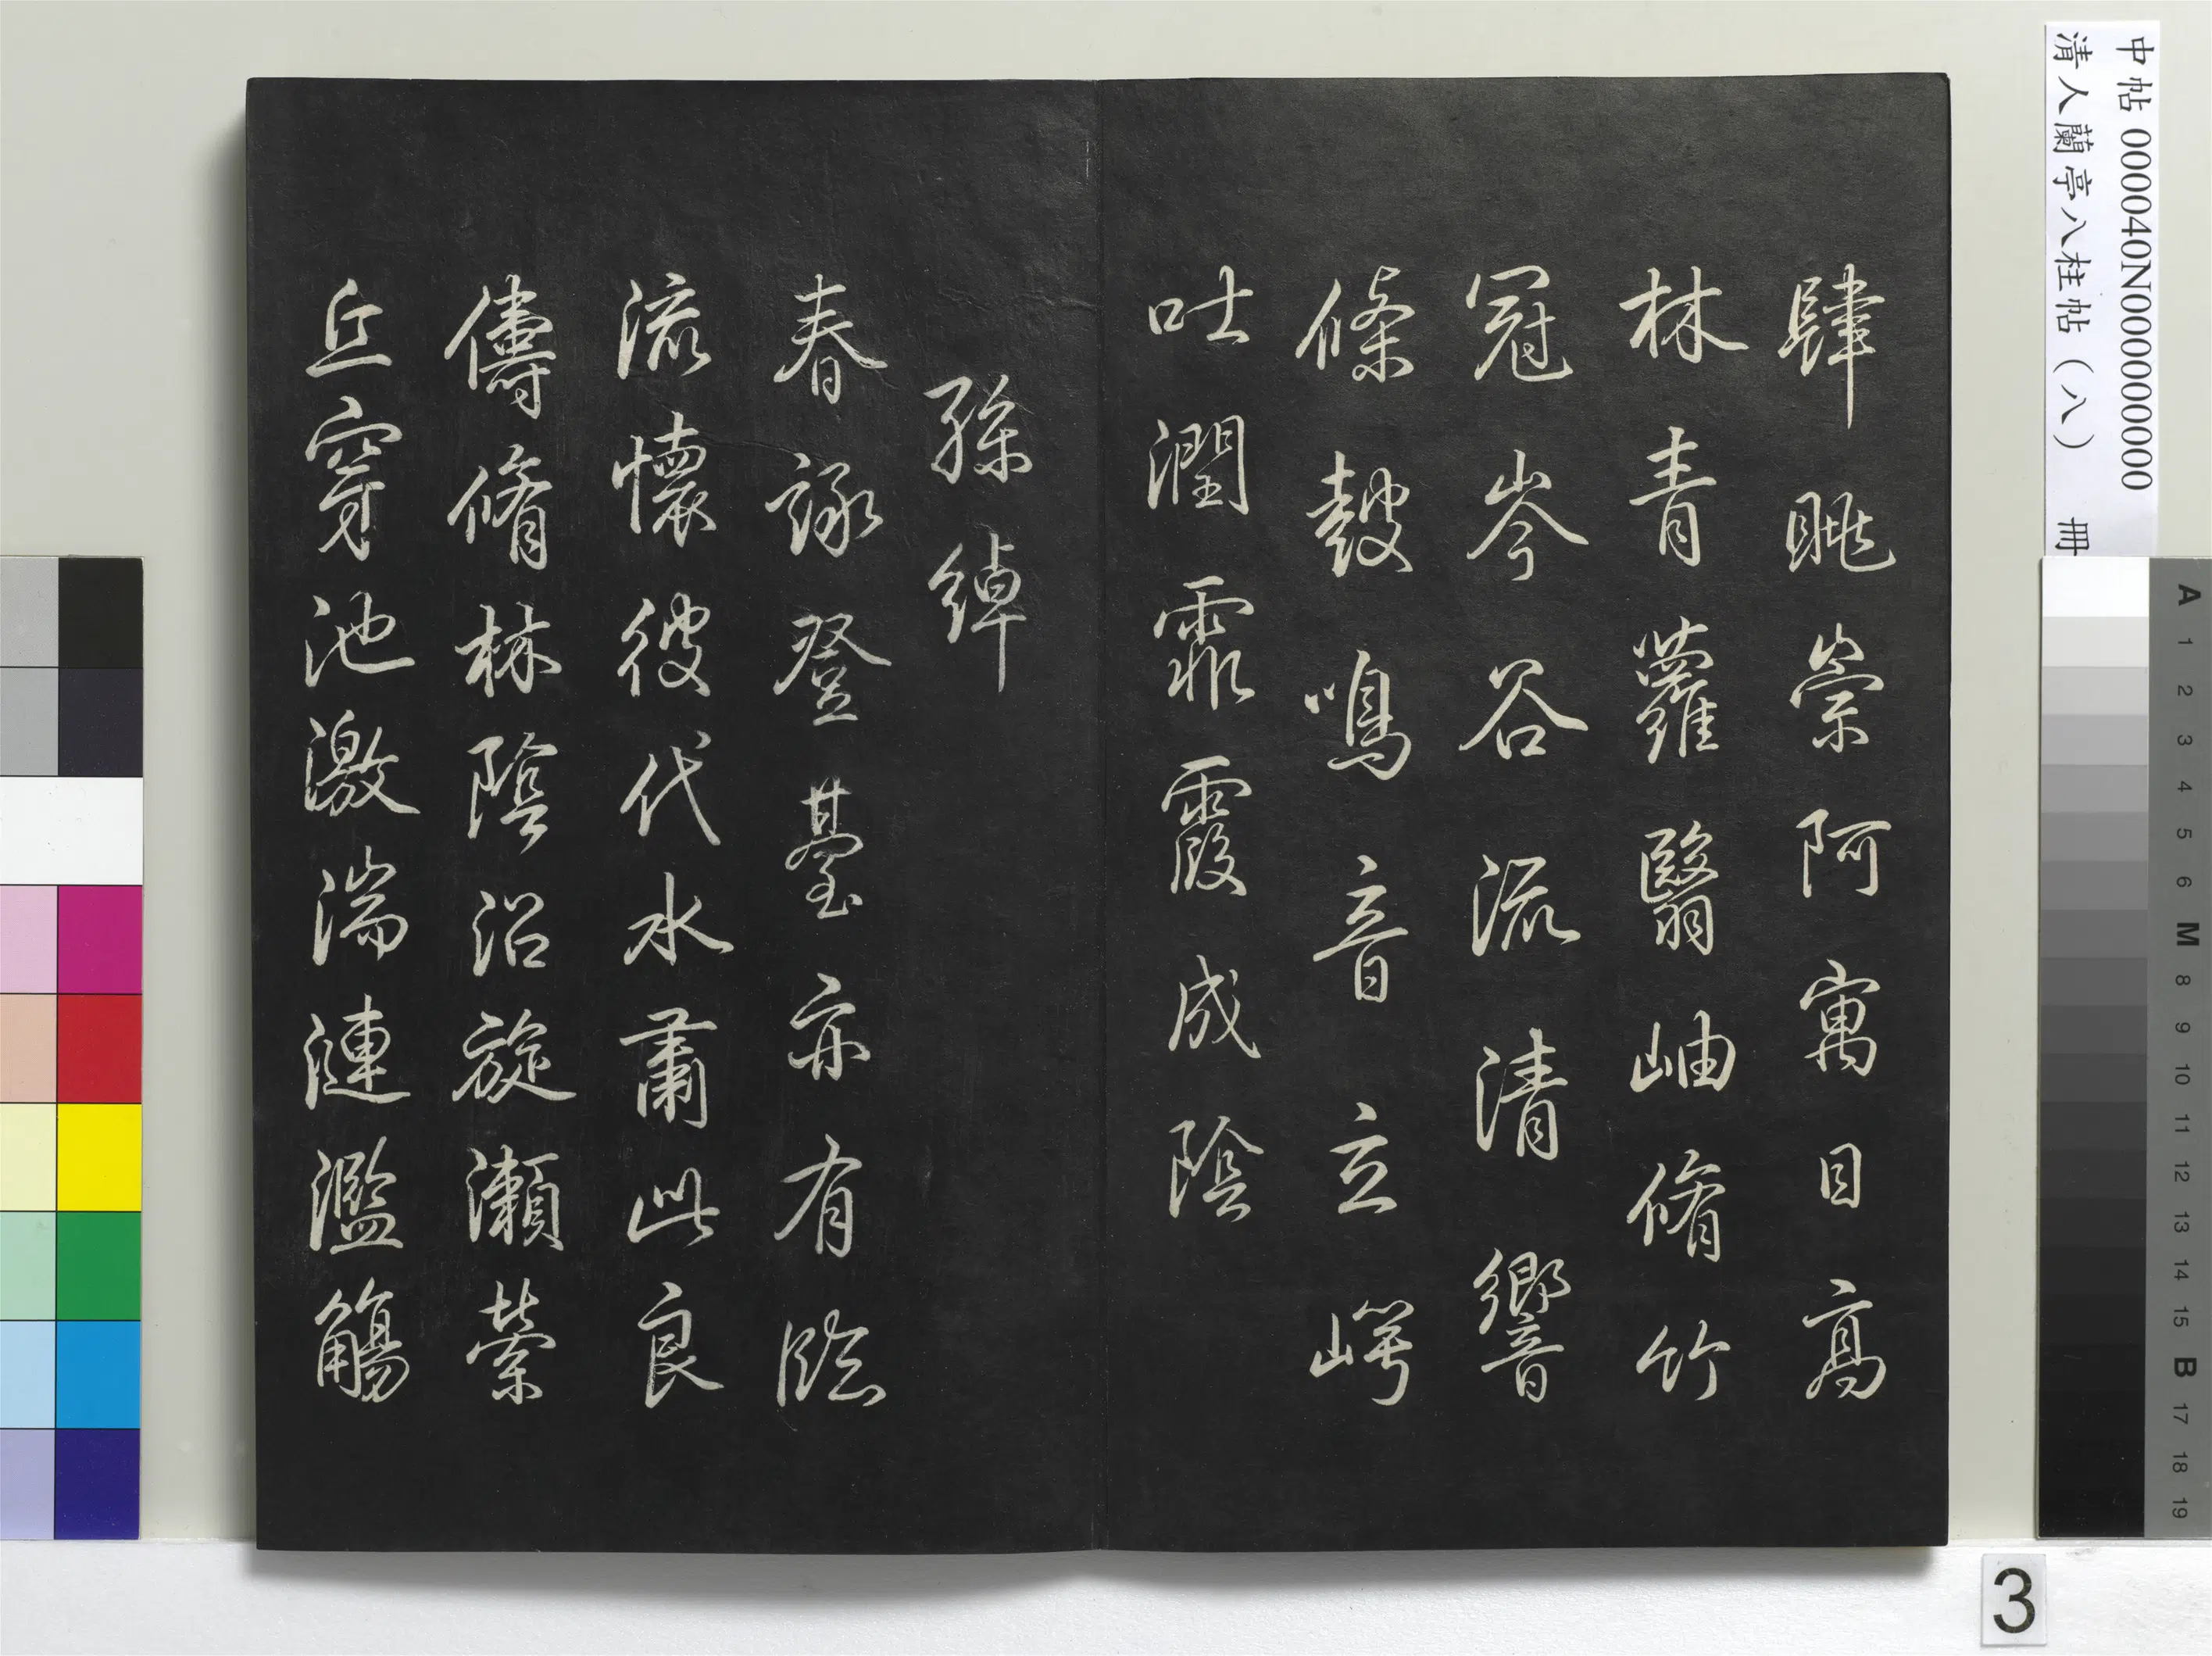 肆眺崇阿寓目高
林青蘿翳岫脩竹
冠岑谷流清響
條鼓鳴音立崿
吐潤霏霧成陰
孫綽
春詠登臺亦有臨
流懷彼伐木肅此良
儔脩林陰沼旋瀨縈
丘穿池激湍漣濫觴
中帖 000040N000000000
清人蘭亭八柱帖（八） 冊
A 1 2 3 4 5 6 M 8 9 10 11 12 13 14 15 B 17 18 19
3